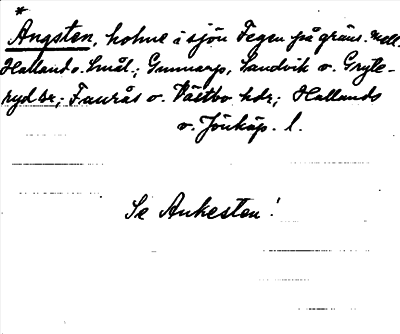 *
Angsten, holme i sjön Fegen på gräns. mell.
Halland o. Smål.; Gunnarp, Sandvik o. Gryte-
ryd sr; Faurås o. Västbo hdr; Hallands
o. Jönköp. l.
Se Ankesten!